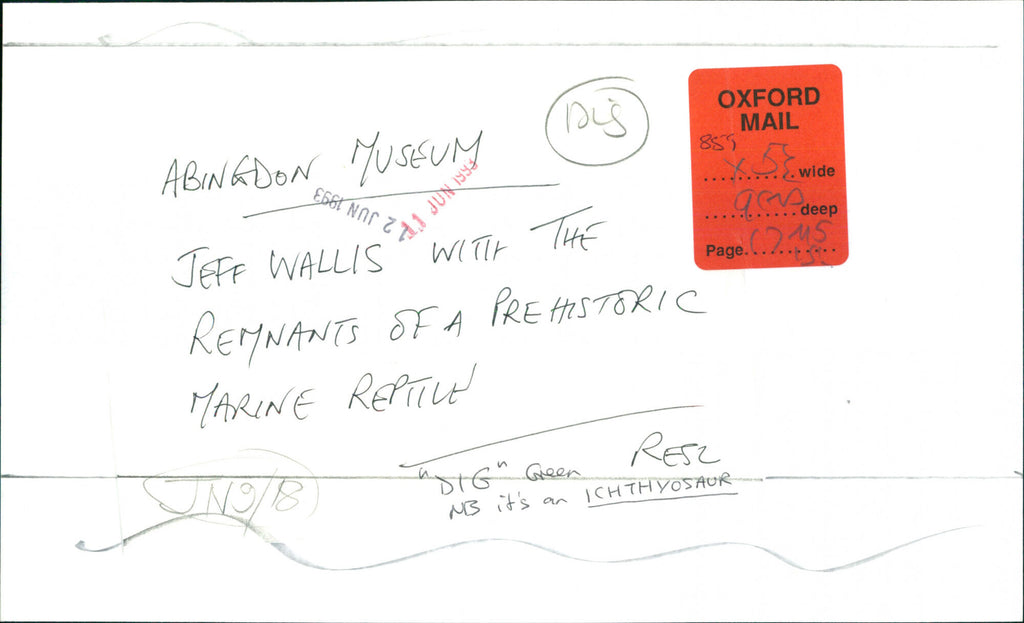 Dig
OXFORD
MAIL
859
x 5½ wide
9 cms deep
Page 17
ABINGDON MUSEUM
12 JUN 1993
11 JUN 1993
JEFF WALLIS WITH THE
REMNANTS OF A PREHISTORIC
MARINE REPTILE
RESZ
"DIG" Green
NB it's an ICHTHYOSAUR
JN9/18